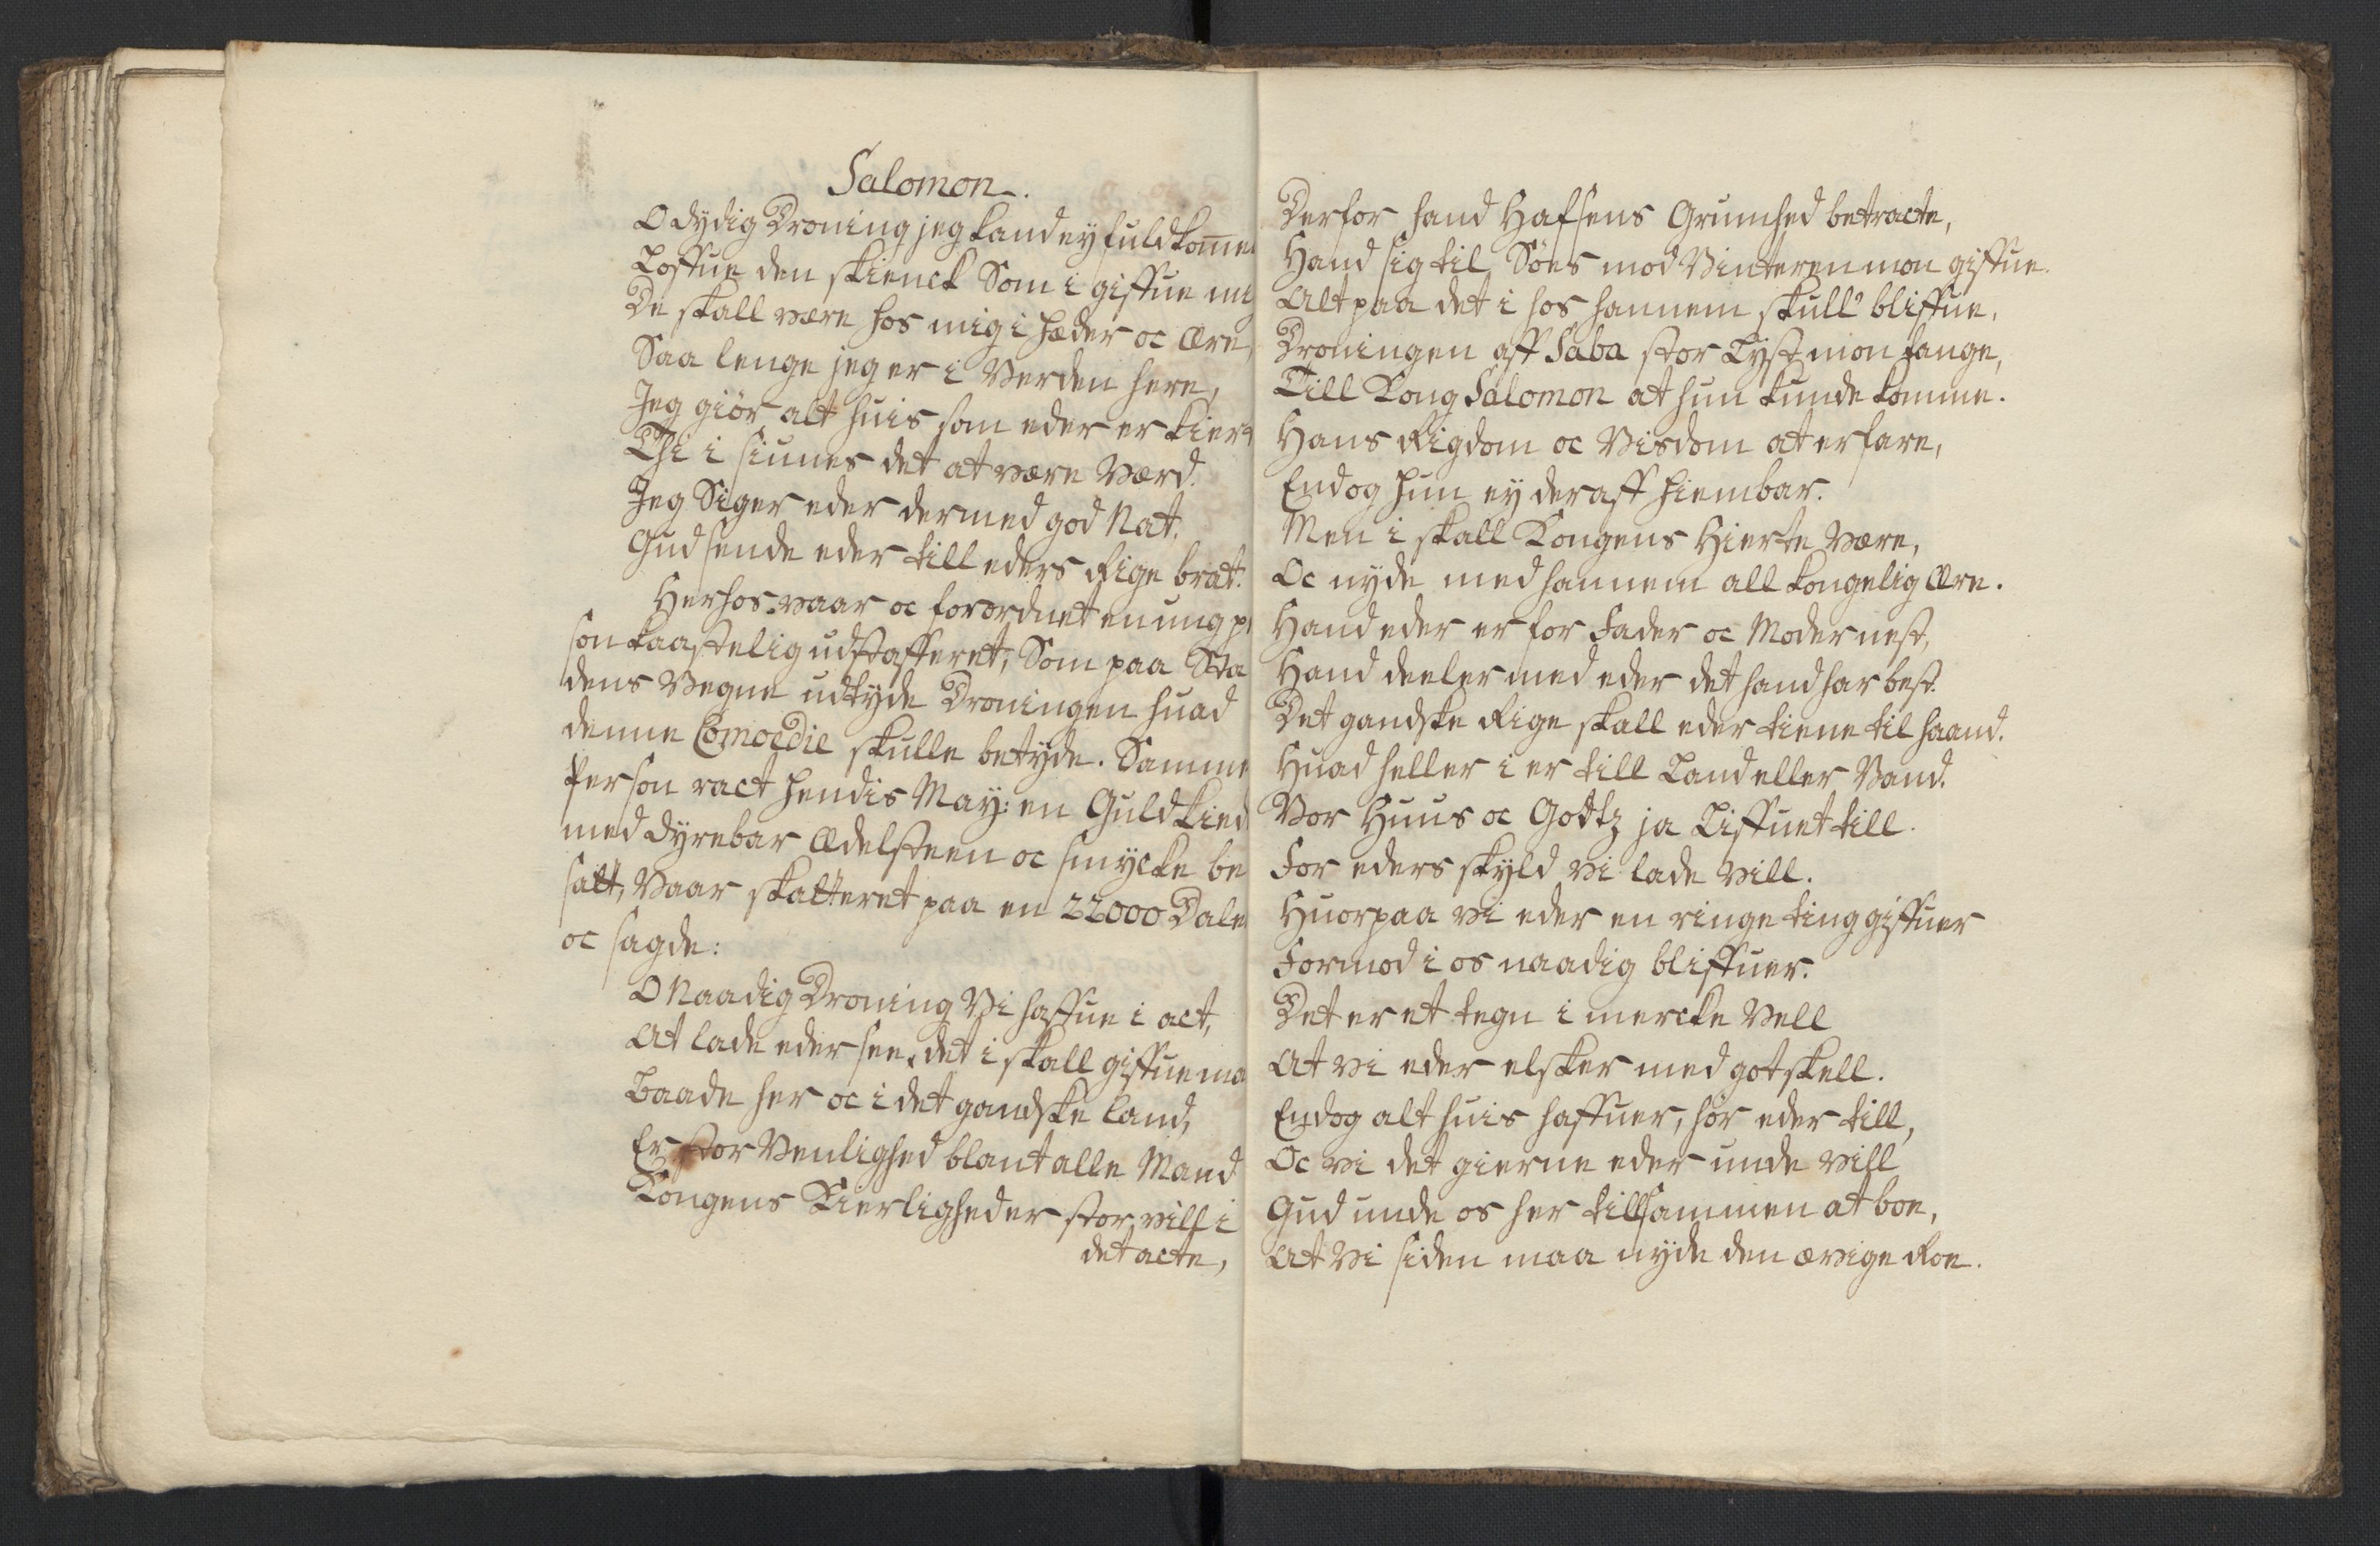 Salomon.
O dydig Droning jeg kand ey fuldkomme
Loffue den skienck Som i giffue mig
De skall vere hos mig i hæder oc Ære,
Saa lenge jeg er i Verden here,
Jeg giör alt huis som eder er kiert
Thi i siunes det at vere Værd.
Jeg Siger eder dermed god Nat.
Gud sende eder till eders Rige brat.
Herhos vaar oc forordnet en ung p
son kaastelig udstafferet, Som paa Sta
dens Vegne udtyde Droningen huad
denne Comoedie skulle betyde. Samme
Person ract hendis May: en Guld kied
med dyrebar Ædelsteen oc smycke be
satt, Vaar skatteret paa en 22000 Dale
oc sagde:
O Naadig Droning Vi haffue i act,
At lade eder see, det i skall giffue ma
Baade her oc i det gandske land,
Er stor Venlighed blant alle Mand
Kongens Kierligheder stor vill i
det acte,
Derfor hand Hafsens Grumhed betracte,
Hand sig til Söes mod Vinteren mon giffue.
Alt paa det i hos hannem skull' bliffue,
Droningen aff Saba stor Lyst mon fange,
Till Kong Salomon at hun kunde komme.
Hans Rigdom oc Visdom at erfare,
Endog hun ey deraff hiembar.
Men i skall Kongens Hierte Være,
Oc nyde med hannem all kongelig Ære.
Hand eder er for Fader oc Moder nest,
Hand deeler med eder det hand har best.
Det gandske Rige skall eder tiene til haand.
Huad heller i er till Land eller Vand.
Vor Huus oc Gottz ja Liffuet till.
For eders skyld vi lade Vill.
Huorpaa vi eder en ringe ting giffuer
Formod i os naadig bliffuer.
Det er et tegn i mercke Vell
At vi eder elsker med got skell.
Endog alt huis haffuer, hör eder till,
Oc vi det gierne eder unde vill
Gud unde os her tillsammen at boe,
At Vi siden maa nyde den ævige Roe.